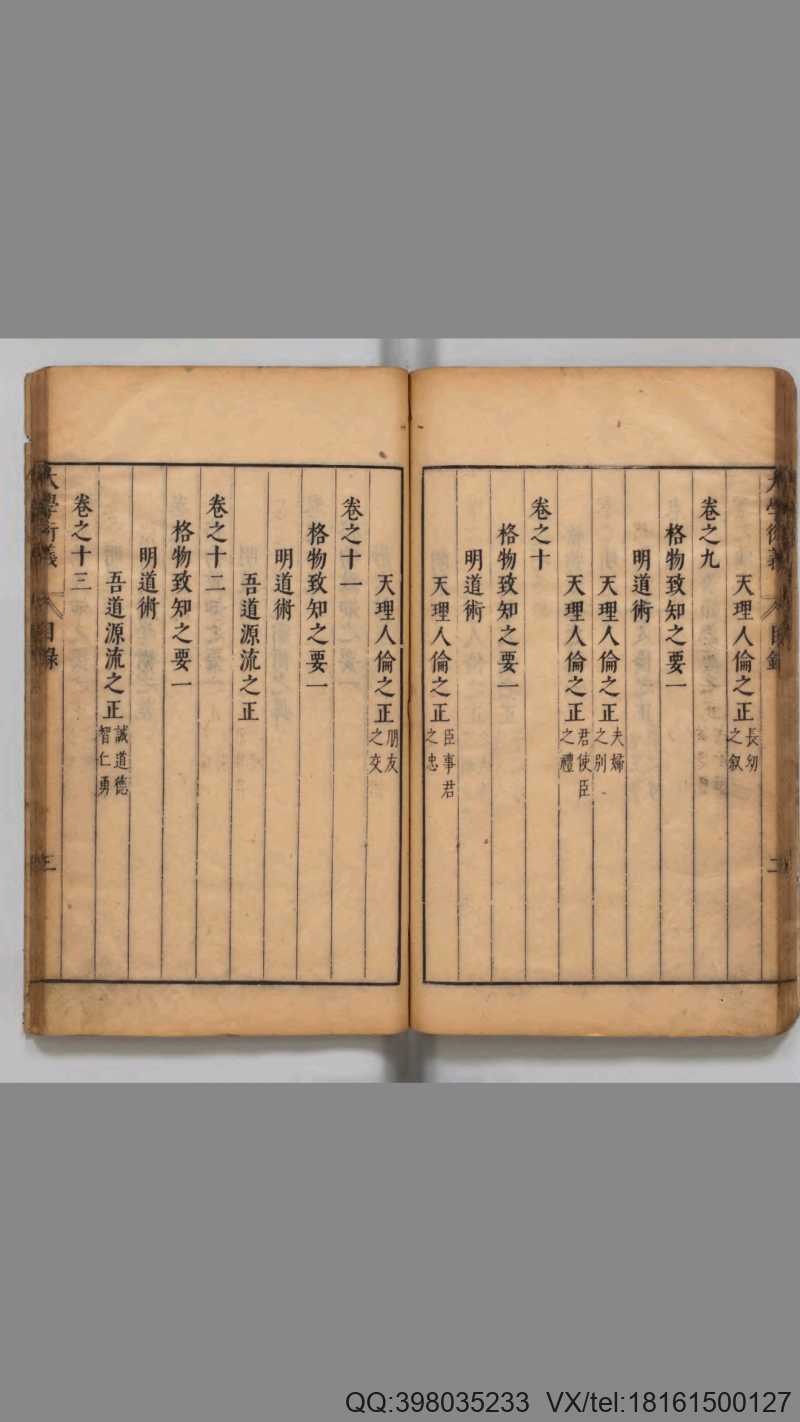 大學衍義 目錄 二
天理人倫之正 長幼之叙
卷之九
格物致知之要一
明道術
天理人倫之正 夫婦之别
天理人倫之正 君使臣之禮
卷之十
格物致知之要一
明道術
天理人倫之正 臣事君之忠
天理人倫之正 朋友之交
卷之十一
格物致知之要一
明道術
吾道源流之正
卷之十二
格物致知之要一
明道術
吾道源流之正 誠道德智仁勇
卷之十三
大學衍義 目錄 三
QQ:398035233 VX/tel:18161500127